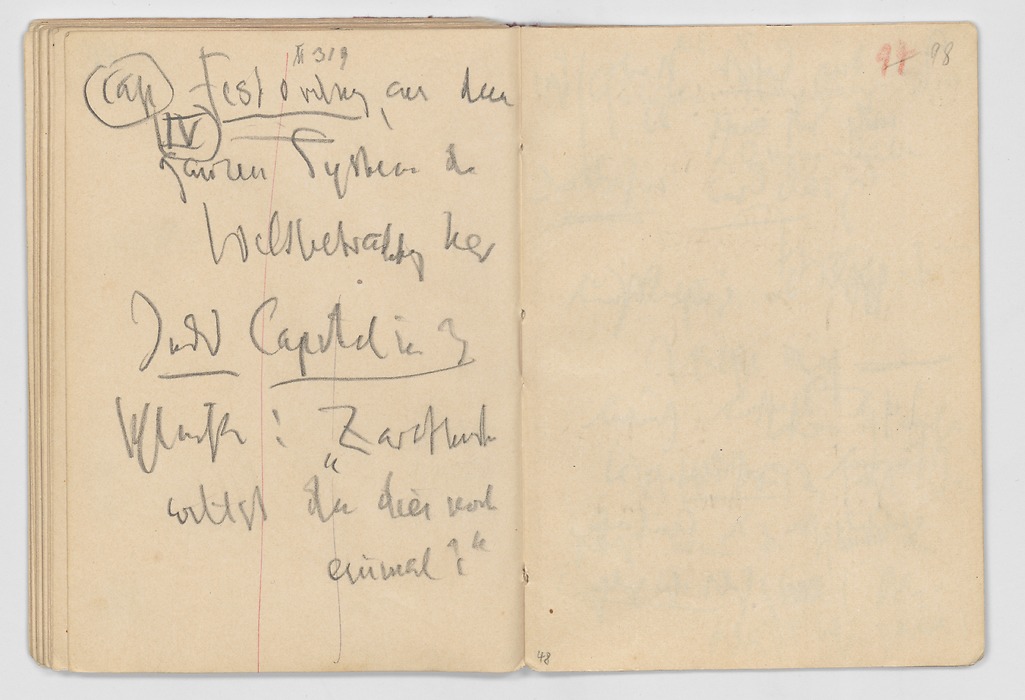 319
Cap Festordnung, aus dem
IV
ganzen System der
Weltbetrachtung her
Capitel in
: „Zarathustra
du dies noch
einmal?“
97 98
48